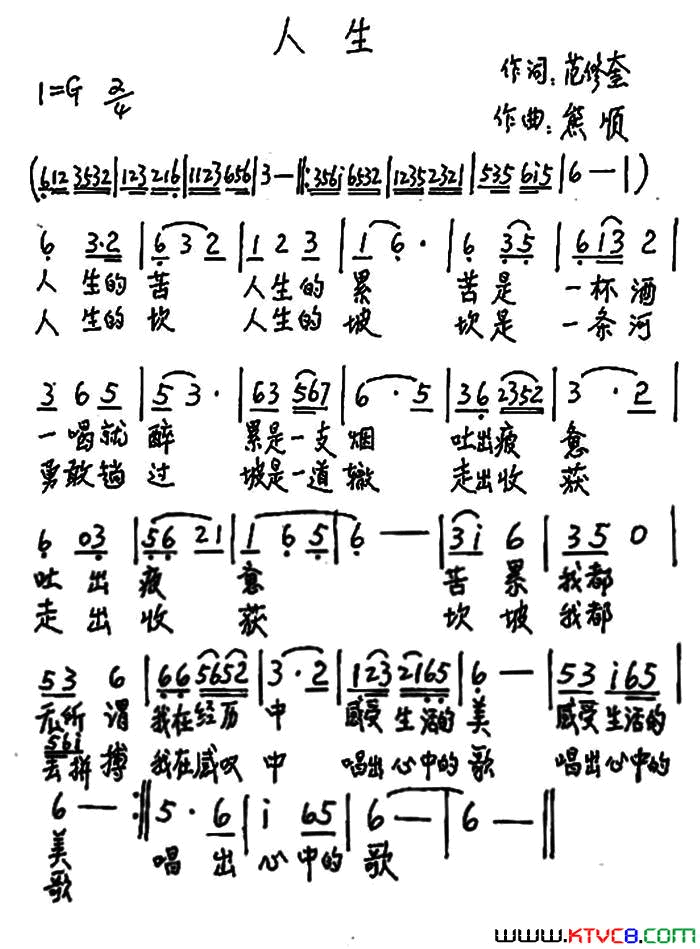 人生
作词:范修奎
1=G 2/4
作曲:熊顺
(612 3532|123 216|1123 656|3—‖:356i 6532|1235 2321|535 6i5|6—|)
6 3·2|6 3 2|1 2 3|1 6·|6 35|613 2|
人 生的 苦 人生的 累 苦是 一杯酒
人 生的 坎 人生的 坡 坎是 一条河
3 6 5|5 3·|63 567|6·5|36 2352|3·2|
一喝就 醉 累是一支烟 吐出疲 惫
勇敢蹚 过 坡是一道辙 走出收 获
6 03|56 21|1 6 5|6—|3i 6|35 0|
吐 出 疲 惫 苦 累 我都
走 出 收 获 坎 坡 我都
53 6|66 5652|3·2|123 2165|6—|53 i65|
无所 谓 我在经历 中 感受 生活的 美 感受 生活的
56i
去拼 搏 我在感叹 中 唱出心中的 歌 唱出心中的
6—:‖5·6|i 65|6—|6—‖
美 唱 出 心 中的 歌
歌
WWW.KTVC8.COM